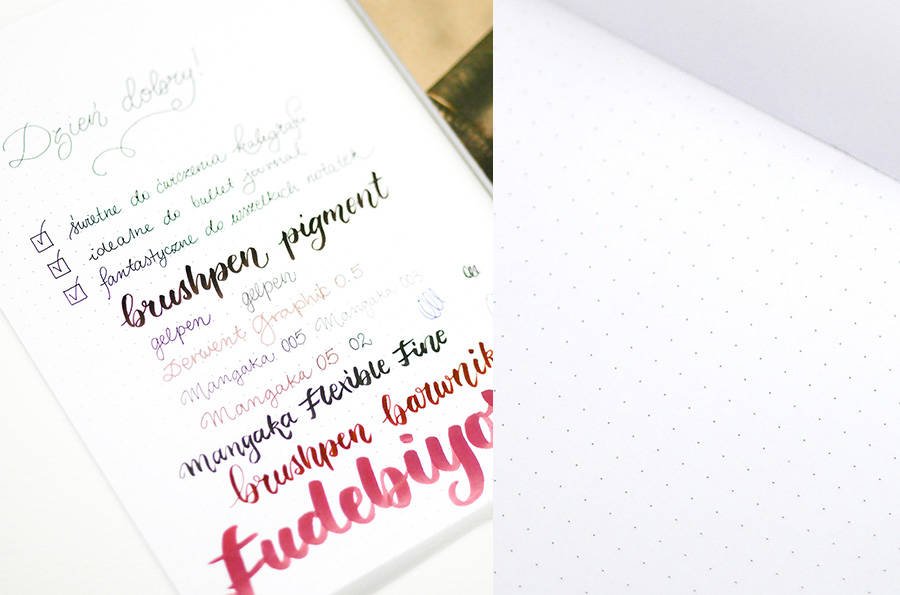 Dzień dobry!
świetne do ćwiczenia kaligrafii
idealne do bullet journal
fantastyczne do wszelkich notatek
brushpen pigment
gelpen gelpen
Derwent Graphik 0.5
Mangaka 005 Mangaka 003
Mangaka 05 02
mangaka Flexible Fine
brushpen barwnik
Fudebiyo